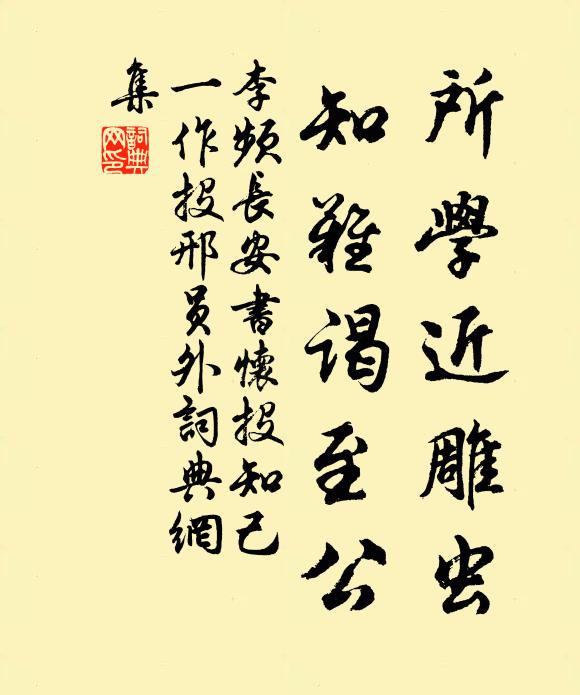 所學近雕虫
知難謁至公
李頻長安書懷投知己
一作投邢员外詞典網
集
詞典网印